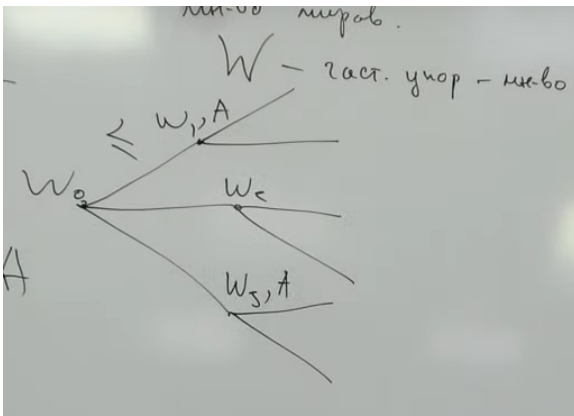 мн-во миров.
W - част. упор - мн-во
≤ W₁, A
W₀
W₂
A
W₃, A